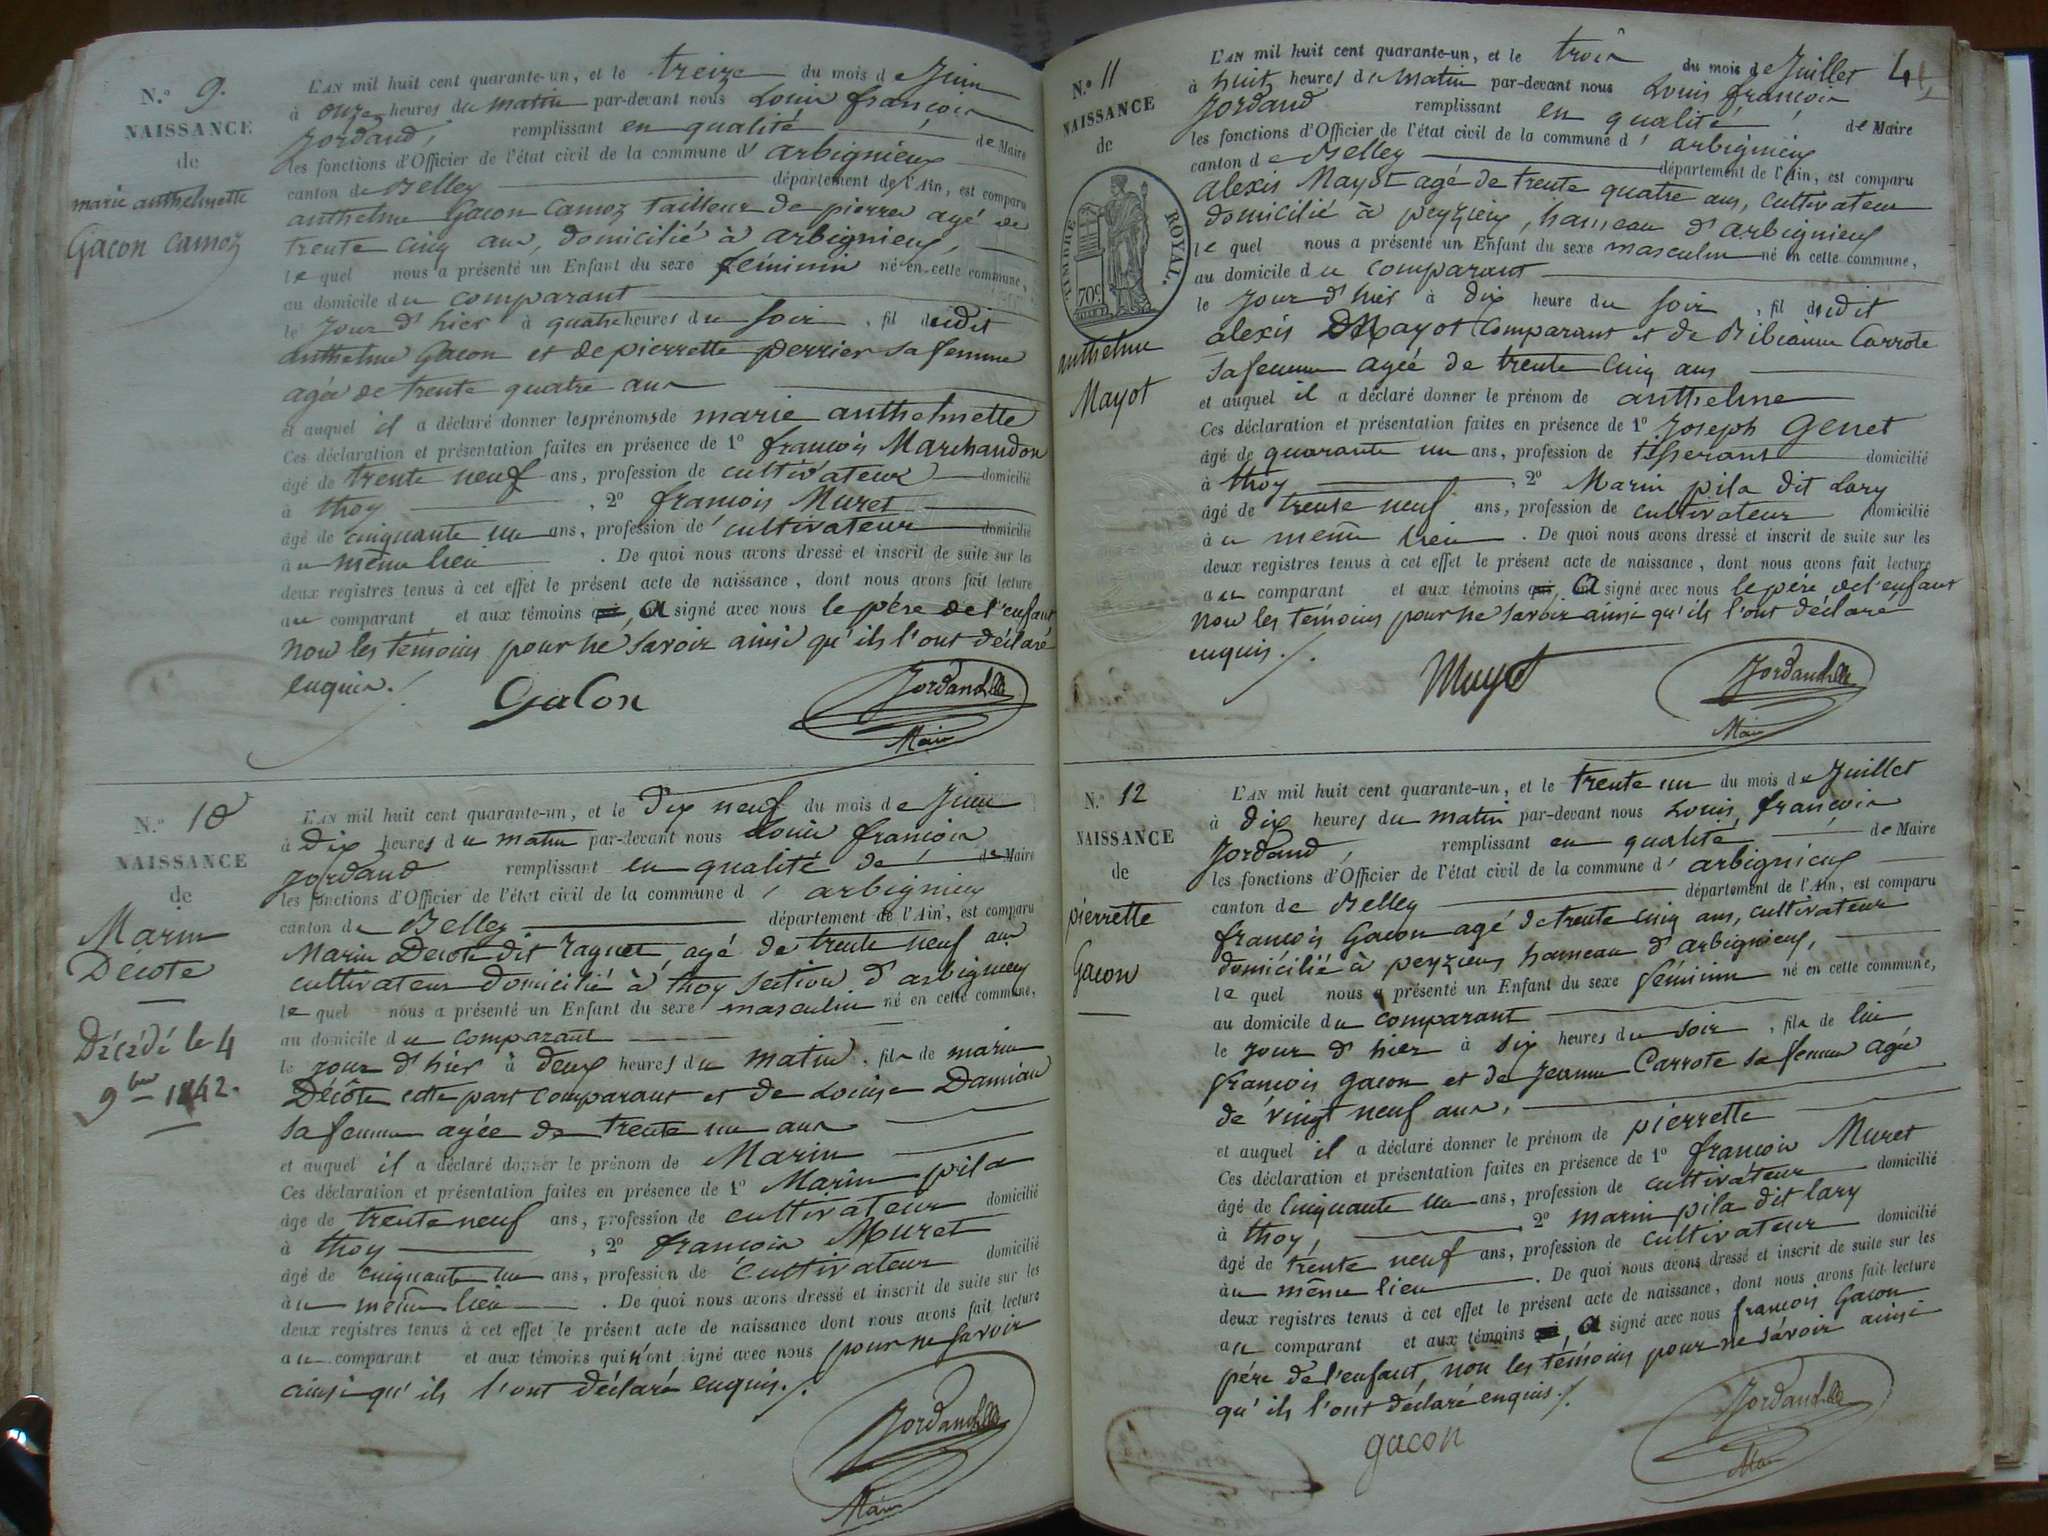 N.º 9.
NAISSANCE
de
marie anthelmette
Gacon Camoz
L'AN mil huit cent quarante-un, et le treize du mois de Juin
à onze heures du matin par-devant nous Louis françois
Jordand, remplissant en qualité de Maire
les fonctions d'Officier de l'état civil de la commune d' arbignieux
canton de Belley département de l'Ain, est comparu
anthelme Gacon Camoz tailleur de pierres agé de
trente cinq ans, domicilié à arbignieux,
le quel nous a présenté un Enfant du sexe féminin né en cette commune,
au domicile du comparant
le jour d'hier à quatre heures du soir, fil dudit
anthelme Gacon et de pierrette perrier sa femme
agée de trente quatre ans
et auquel il a déclaré donner les prénoms de marie anthelmette
Ces déclaration et présentation faites en présence de 1º françois Marchandon
âgé de trente neuf ans, profession de cultivateur domicilié
à thoy, 2º françois Muret
âgé de cinquante un ans, profession de cultivateur domicilié
au même lieu. De quoi nous avons dressé et inscrit de suite sur les
deux registres tenus à cet effet le présent acte de naissance, dont nous avons fait lecture
au comparant et aux témoins qui, a signé avec nous le père de l'enfant
non les témoins pour ne savoir ainsi qu'ils l'ont déclaré
enquis./.
Gacon
Jordand
Maire
N.º 10
NAISSANCE
de
Marin
Décote
Décédé le 4
9bre 1842.
L'AN mil huit cent quarante-un, et le Dix neuf du mois de Juin
à Dix heures du matin par-devant nous Louis françois
Jordand remplissant en qualité de de Maire
les fonctions d'Officier de l'état civil de la commune d' arbignieux
canton de Belley département de l'Ain, est comparu
Marin Decote dit raquet, agé de trente neuf ans
cultivateur domicilié à thoy section d'arbignieux
le quel nous a présenté un Enfant du sexe masculin né en cette commune,
au domicile du comparant
le jour d'hier à deux heures du matin, fils de marin
Décôte comparant et de Louise Damian
sa femme agée de trente un ans
et auquel il a déclaré donner le prénom de Marin
Ces déclaration et présentation faites en présence de 1º Marin pila
âge de trente neuf ans, profession de cultivateur domicilié
à thoy, 2º françois Muret
âgé de cinquante un ans, profession de cultivateur domicilié
au même lieu. De quoi nous avons dressé et inscrit de suite sur les
deux registres tenus à cet effet le présent acte de naissance dont nous avons fait lecture
au comparant et aux témoins qui n'ont signé avec nous pour ne savoir
ainsi qu'ils l'ont déclaré enquis./.
Jordand
Maire
N.º 11
NAISSANCE
de
TIMBRE ROYAL.
70c
anthelme
Mayot
L'AN mil huit cent quarante-un, et le trois du mois de Juillet
à huit heures du matin par-devant nous Louis françois
Jordand remplissant en qualité de Maire
les fonctions d'Officier de l'état civil de la commune d' arbignieux
canton de Belley département de l'Ain, est comparu
alexis Mayot agé de trente quatre ans, cultivateur
domicilié à peyzieux, hameau d'arbignieux
le quel nous a présenté un Enfant du sexe masculin né en cette commune,
au domicile du comparant
le jour d'hier à dix heure du soir, fil dudit
alexis Mayot comparant et de Bibianne Carrote
sa femme agée de trente cinq ans
et auquel il a déclaré donner le prénom de anthelme
Ces déclaration et présentation faites en présence de 1º Joseph Genet
âgé de quarante un ans, profession de tisserant domicilié
à thoy, 2º Marin pila dit Lary
âgé de trente neuf ans, profession de cultivateur domicilié
au même lieu. De quoi nous avons dressé et inscrit de suite sur les
deux registres tenus à cet effet le présent acte de naissance, dont nous avons fait lecture
au comparant et aux témoins qui, a signé avec nous le père de l'enfant
non les témoins pour ne savoir ainsi qu'ils l'ont déclaré
enquis./.
Mayot
Jordand
Maire
N.º 12
NAISSANCE
de
pierrette
Gacon
L'AN mil huit cent quarante-un, et le trente un du mois de Juillet
à dix heures du matin par-devant nous Louis françois
Jordand, remplissant en qualité de Maire
les fonctions d'Officier de l'état civil de la commune d' arbignieux
canton de Belley département de l'Ain, est comparu
françois Gacon agé de trente cinq ans, cultivateur
domicilié à peyzieux hameau d'arbignieux,
le quel nous a présenté un Enfant du sexe féminin né en cette commune,
au domicile du comparant
le jour d'hier à six heures du soir, fils de lui
françois Gacon et de Jeanne Carrote sa femme agée
de vingt neuf ans,
et auquel il a déclaré donner le prénom de pierrette
Ces déclaration et présentation faites en présence de 1º françois Muret
âgé de cinquante un ans, profession de cultivateur domicilié
à thoy, 2º marin pila dit lary
âgé de trente neuf ans, profession de cultivateur domicilié
au même lieu. De quoi nous avons dressé et inscrit de suite sur les
deux registres tenus à cet effet le présent acte de naissance, dont nous avons fait lecture
au comparant et aux témoins qui, a signé avec nous françois Gacon
père de l'enfant, non les témoins pour ne savoir ainsi
qu'ils l'ont déclaré enquis./.
gacon
Jordand
Maire